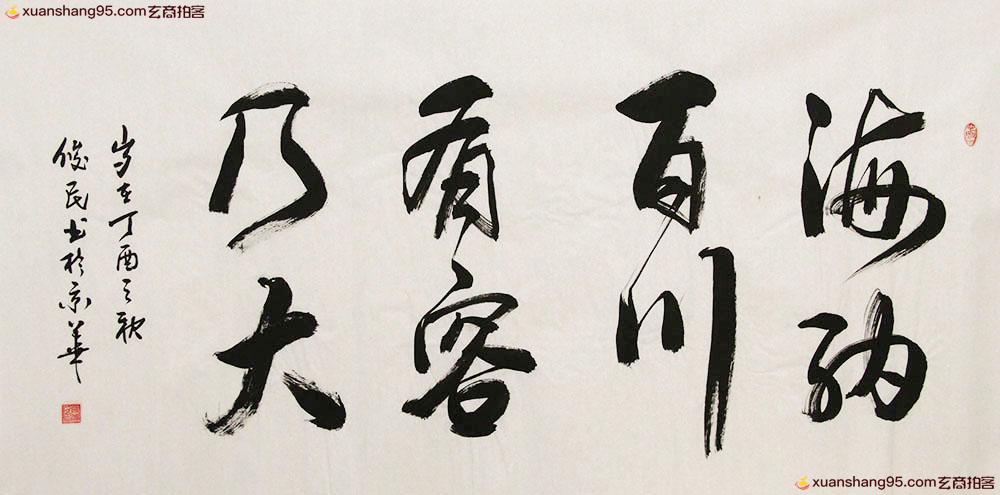 海纳
百川
有容
乃大
岁在丁酉之秋
俊民书于京华
xuanshang95.com玄商拍客
xuanshang95.com玄商拍客
xuanshang95.com玄商拍客